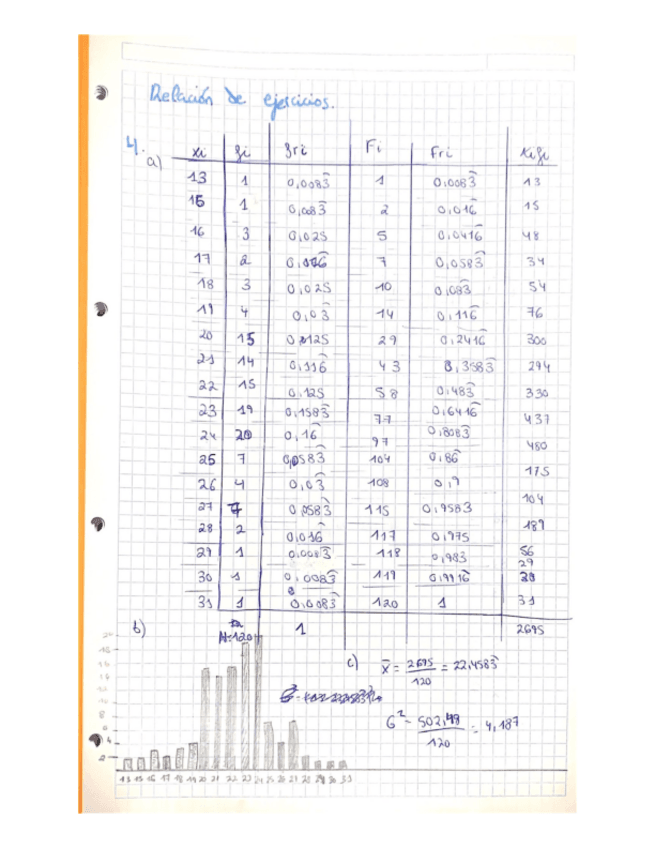 Relación de ejercicios.
4.
a) xi fi fri Fi Fri xi fi
13 1 0,0083 1 0,0083 13
15 1 0,0083 2 0,016 15
16 3 0,025 5 0,0416 48
17 2 0,016 7 0,0583 34
18 3 0,025 10 0,083 54
19 4 0,03 14 0,116 76
20 15 0,125 29 0,2416 300
21 14 0,116 43 0,3583 294
22 15 0,125 58 0,483 330
23 19 0,1583 77 0,6416 437
24 20 0,16 97 0,8083 480
25 7 0,0583 104 0,86 175
26 4 0,03 108 0,9 104
27 7 0,0583 115 0,9583 189
28 2 0,016 117 0,975 56
29 1 0,0083 118 0,983 29
30 1 0,0083 119 0,9916 30
31 1 0,0083 120 1 31
N=120 1 2695
b)
c) x̄ = 2695/120 = 22,4583
σ² = 502,49/120 = 4,187
13 15 16 17 18 19 20 21 22 23 24 25 26 27 28 29 30 31